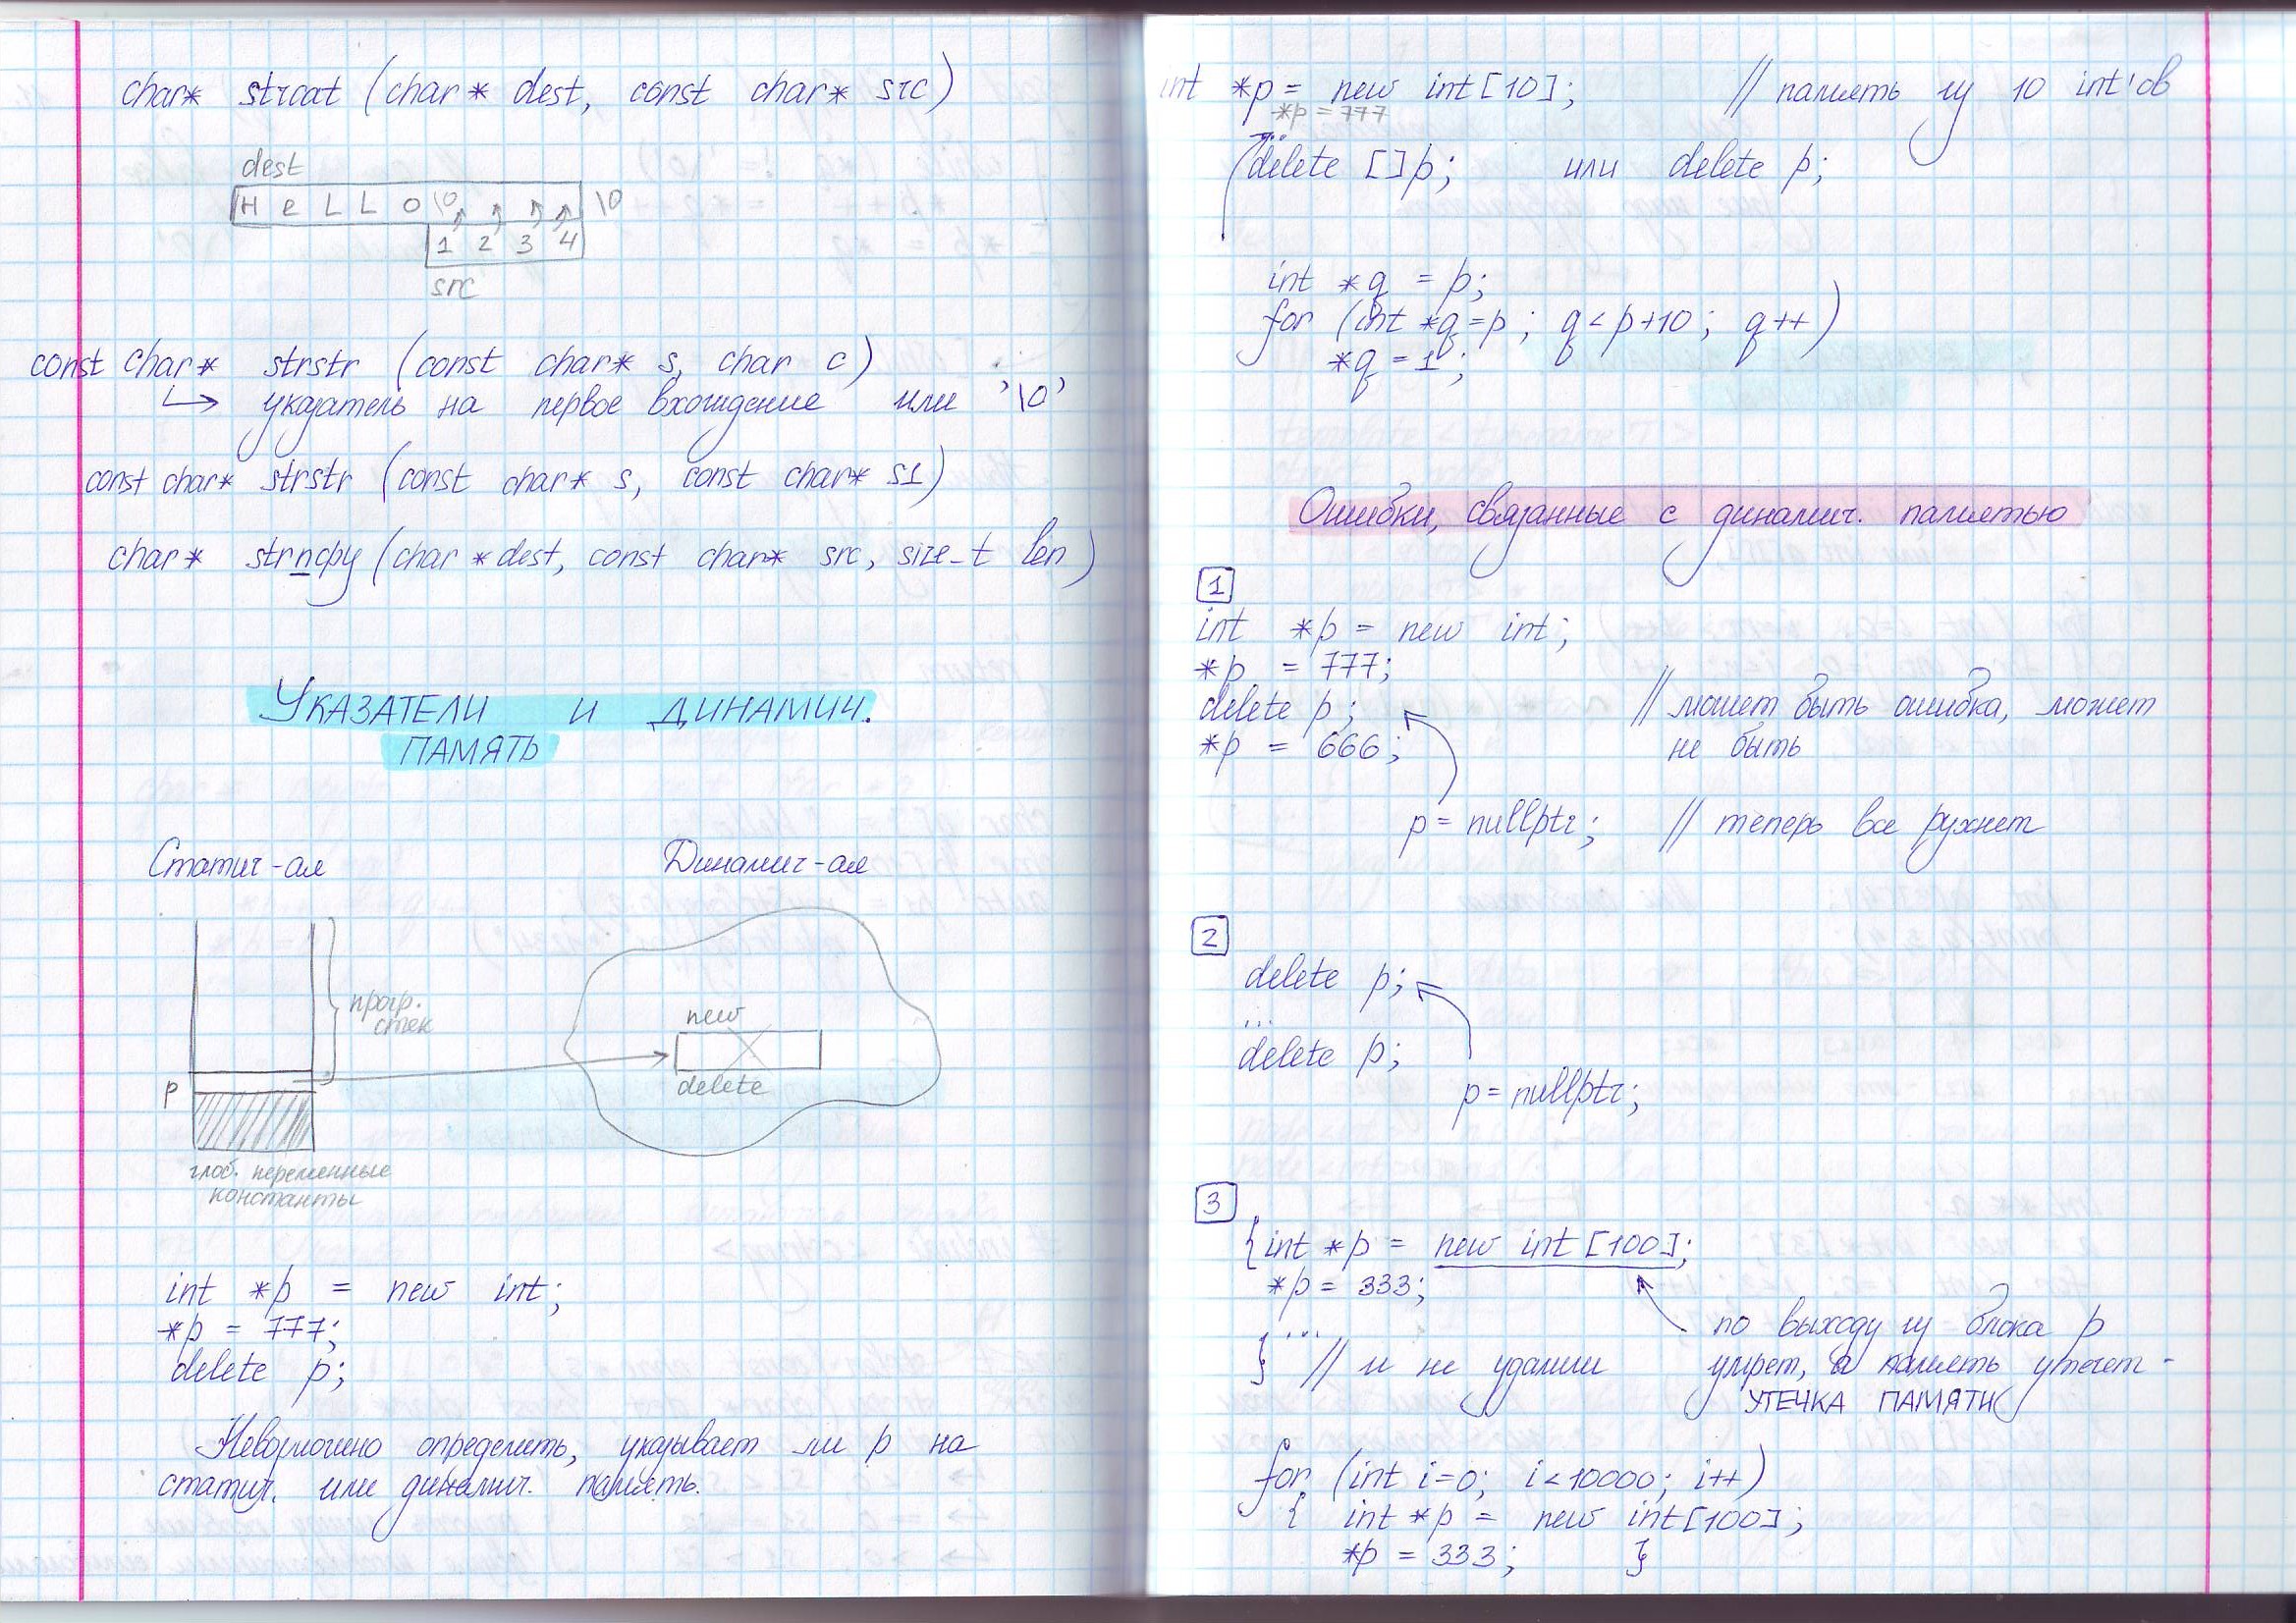 char* strcat (char* dest, const char* src)
dest
H e L L O \0 \0
1 2 3 4
src
const char* strstr (const char* s, char c)
указатель на первое вхождение или '\0'
const char* strstr (const char* s, const char* s1)
char* strncpy (char* dest, const char* src, size_t len)
УКАЗАТЕЛИ И ДИНАМИЧ.
ПАМЯТЬ
Статич-ая Динамич-ая
прогр.
стек
new
p
delete
глоб. переменные
константы
int *p = new int;
*p = 777;
delete p;
Невозможно определить, указывает ли p на
статич. или динамич. память.
int *p = new int[10]; // память из 10 int'ов
*p = 777
...
delete []p; или delete p;
int *q = p;
for (int *q=p; q<p+10; q++)
*q = 1;
Ошибки, связанные с динамич. памятью
1
int *p = new int;
*p = 777;
delete p; // может быть ошибка, может
*p = 666; не быть
p = nullptr; // теперь все рухнет
2
delete p;
...
delete p;
p = nullptr;
3
{int *p = new int[100];
*p = 333;
... по выходу из блока p
} // и не удалили умрет, а память утечет -
УТЕЧКА ПАМЯТИ
for (int i=0; i<10000; i++)
{ int *p = new int[100];
*p = 333; }